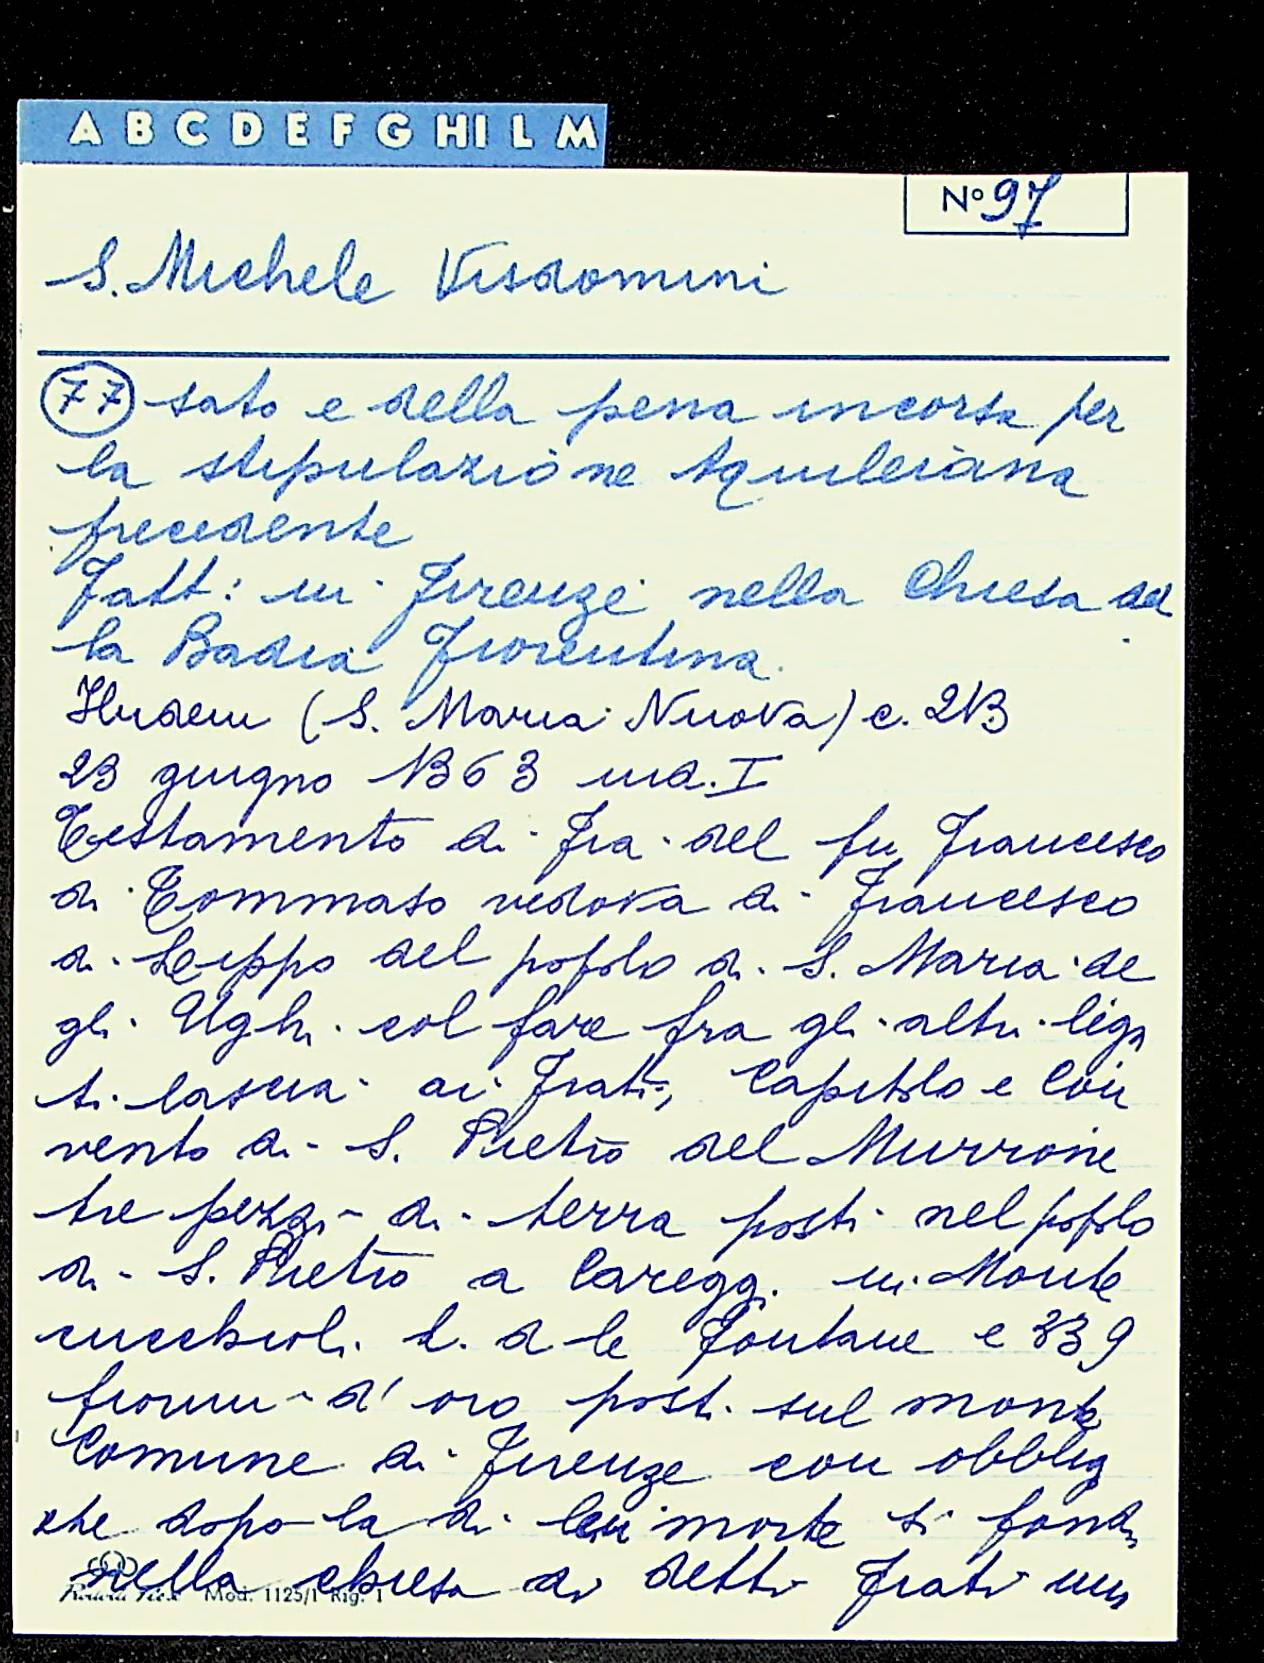 A B C D E F G HI L M
N° 97
S. Michele Visdomini
77 sato e della pena incorsa per
la stipulazione Aquileiana
precedente
Fatt: in Firenze nella Chiesa del
la Badia Fiorentina.
(S. Maria Nuova) c. 213
23 giugno 1363 ind. I
Testamento di Fra del fu Francesco
di Tommaso vedova di Francesco
di Lippo del popolo di S. Maria de
gli Ughi col fare fra gli altri lega
ti lascia ai Frati, Capitolo e Con
vento di S. Pietro del Murrone
tre pezzi di terra posti nel popolo
di S. Pietro a Caregg. in Monte
cucchioli l. d. le Fontane e 339
fiorini d'oro posti sul monte
Comune di Firenze con obblig
che dopo la di lui morte si fondi
nella chiesa di detti Frati un
Mod. 1125/1 Rig. 1